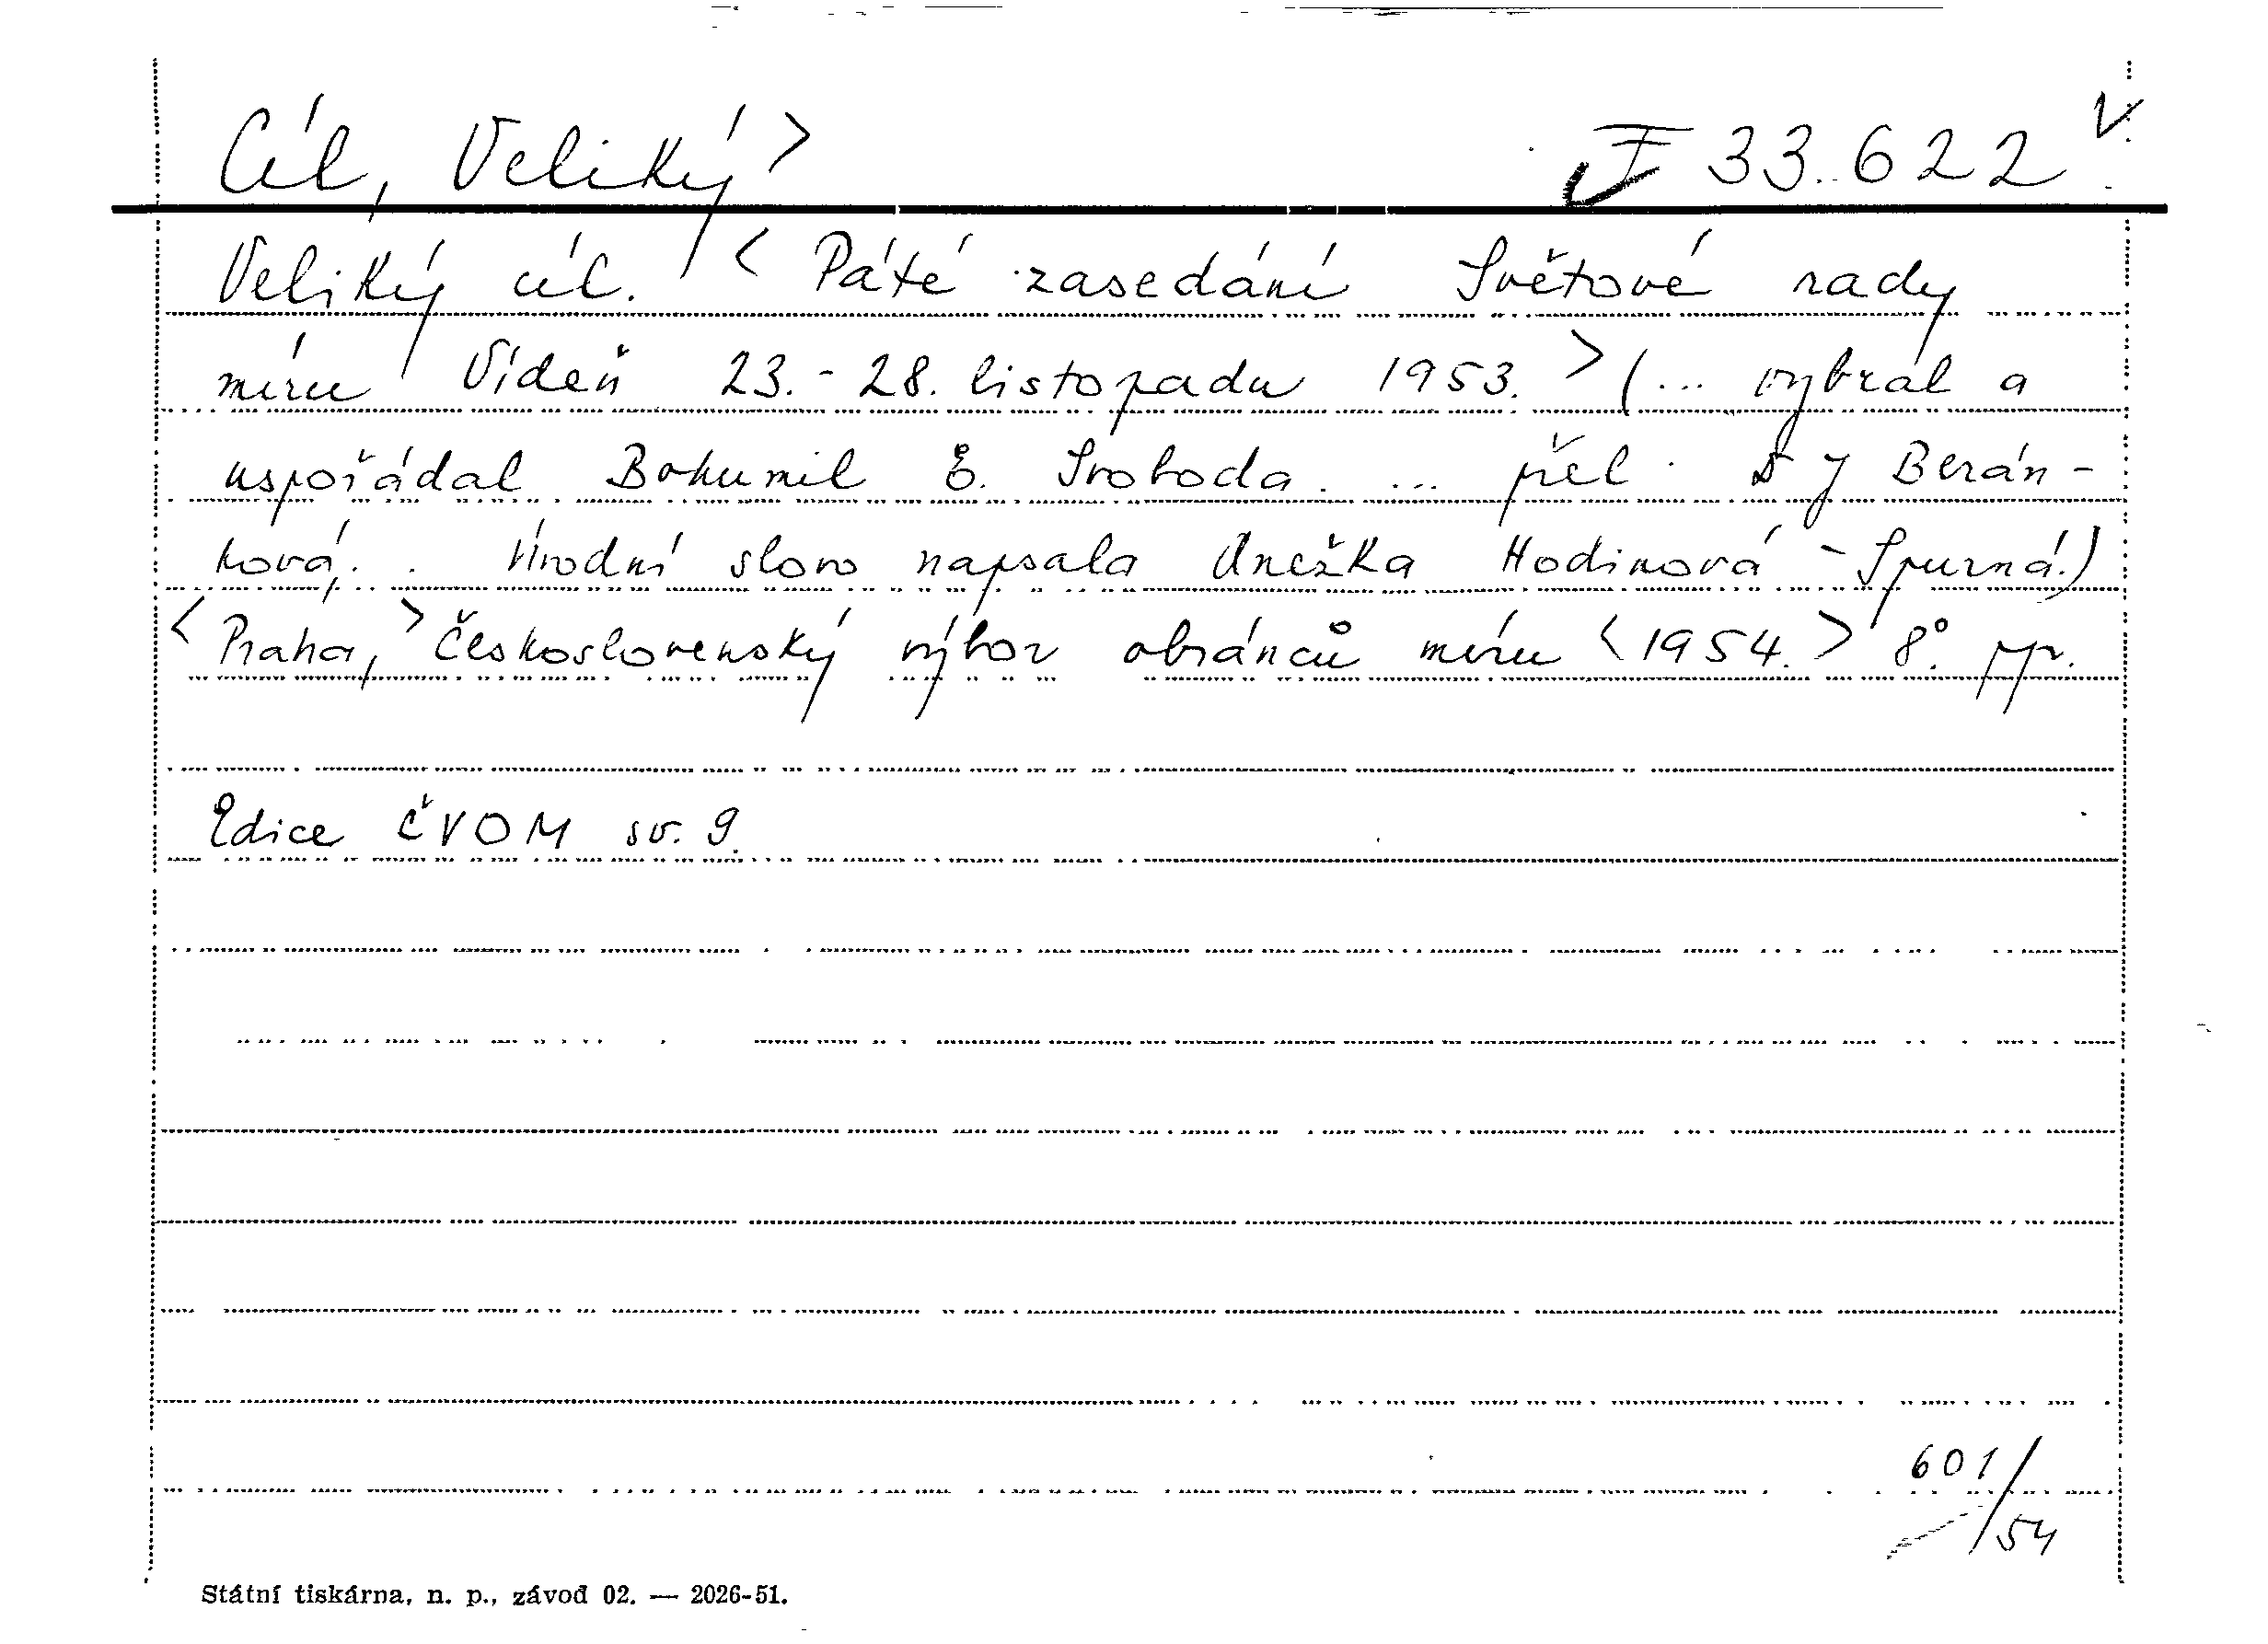 Cíl, Veliký > I 33.622 V.
Veliký cíl. < Páté zasedání Světové rady
míru Vídeň 23.-28. listopadu 1953. > (... vybral a
uspořádal Bohumil E. Svoboda. ... přel. D J Berán-
ková. Úvodní slovo napsala Anežka Hodinová-Spurná.)
< Praha, > Československý výbor obránců míru < 1954. > 8°. pp.
Edice ČVOM sv. 9.
601/54
Státní tiskárna, n. p., závod 02. — 2026-51.